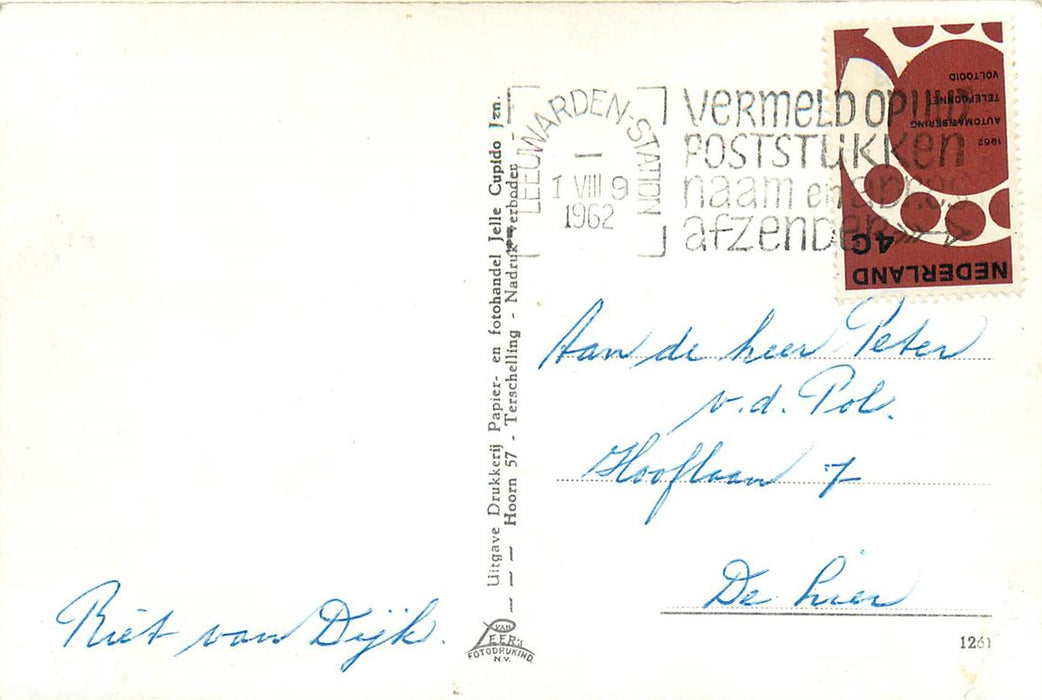 LEEUWARDEN-STATION
1 VIII 9
1962
VERMELD OP UW
POSTSTUKKEN
naam en adres
afzender
VOLTOOID
TELEFOONNET
AUTOMATISERING
1962
4C
NEDERLAND
Uitgave Drukkerij Papier- en fotohandel Jelle Cupido Jzn.
Hoorn 57 - Terschelling - Nadruk verboden
Aan de heer Peter
v.d. Pol.
Hooflaan 7
De hier
Riet van Dijk.
VAN
LEER'S
FOTODRUKIND.
N.V.
1261